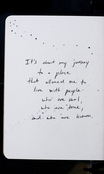 It's about my journey
to a place
that allowed me to
live with people
who are real,
who are here,
and who are human.